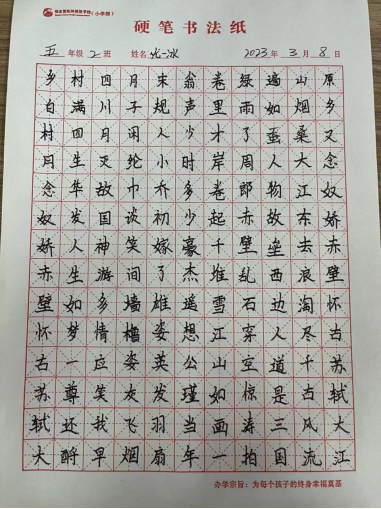 (小学部)
硬笔书法纸
五年级2班 姓名 2023年3月8日
乡村四月宋翁卷绿遍山原
白满川子规声里雨如烟乡
村四月闲人少才了蚕桑又
月生灭纶小时岸周人大念
念华故巾乔多卷郎物江奴
奴发国谈初少起赤故东娇
娇人神笑嫁豪千壁垒去赤
赤生游间了杰堆乱西浪壁
壁如多墙雄遥雪石边淘怀
怀梦情橹姿想江穿人尽古
古一应姿英公山空道千苏
苏尊笑灰发瑾如惊是古轼
轼还我飞羽当画涛三风大
大酹早烟扇年一拍国流江
办学宗旨：为每个孩子的终身幸福奠基